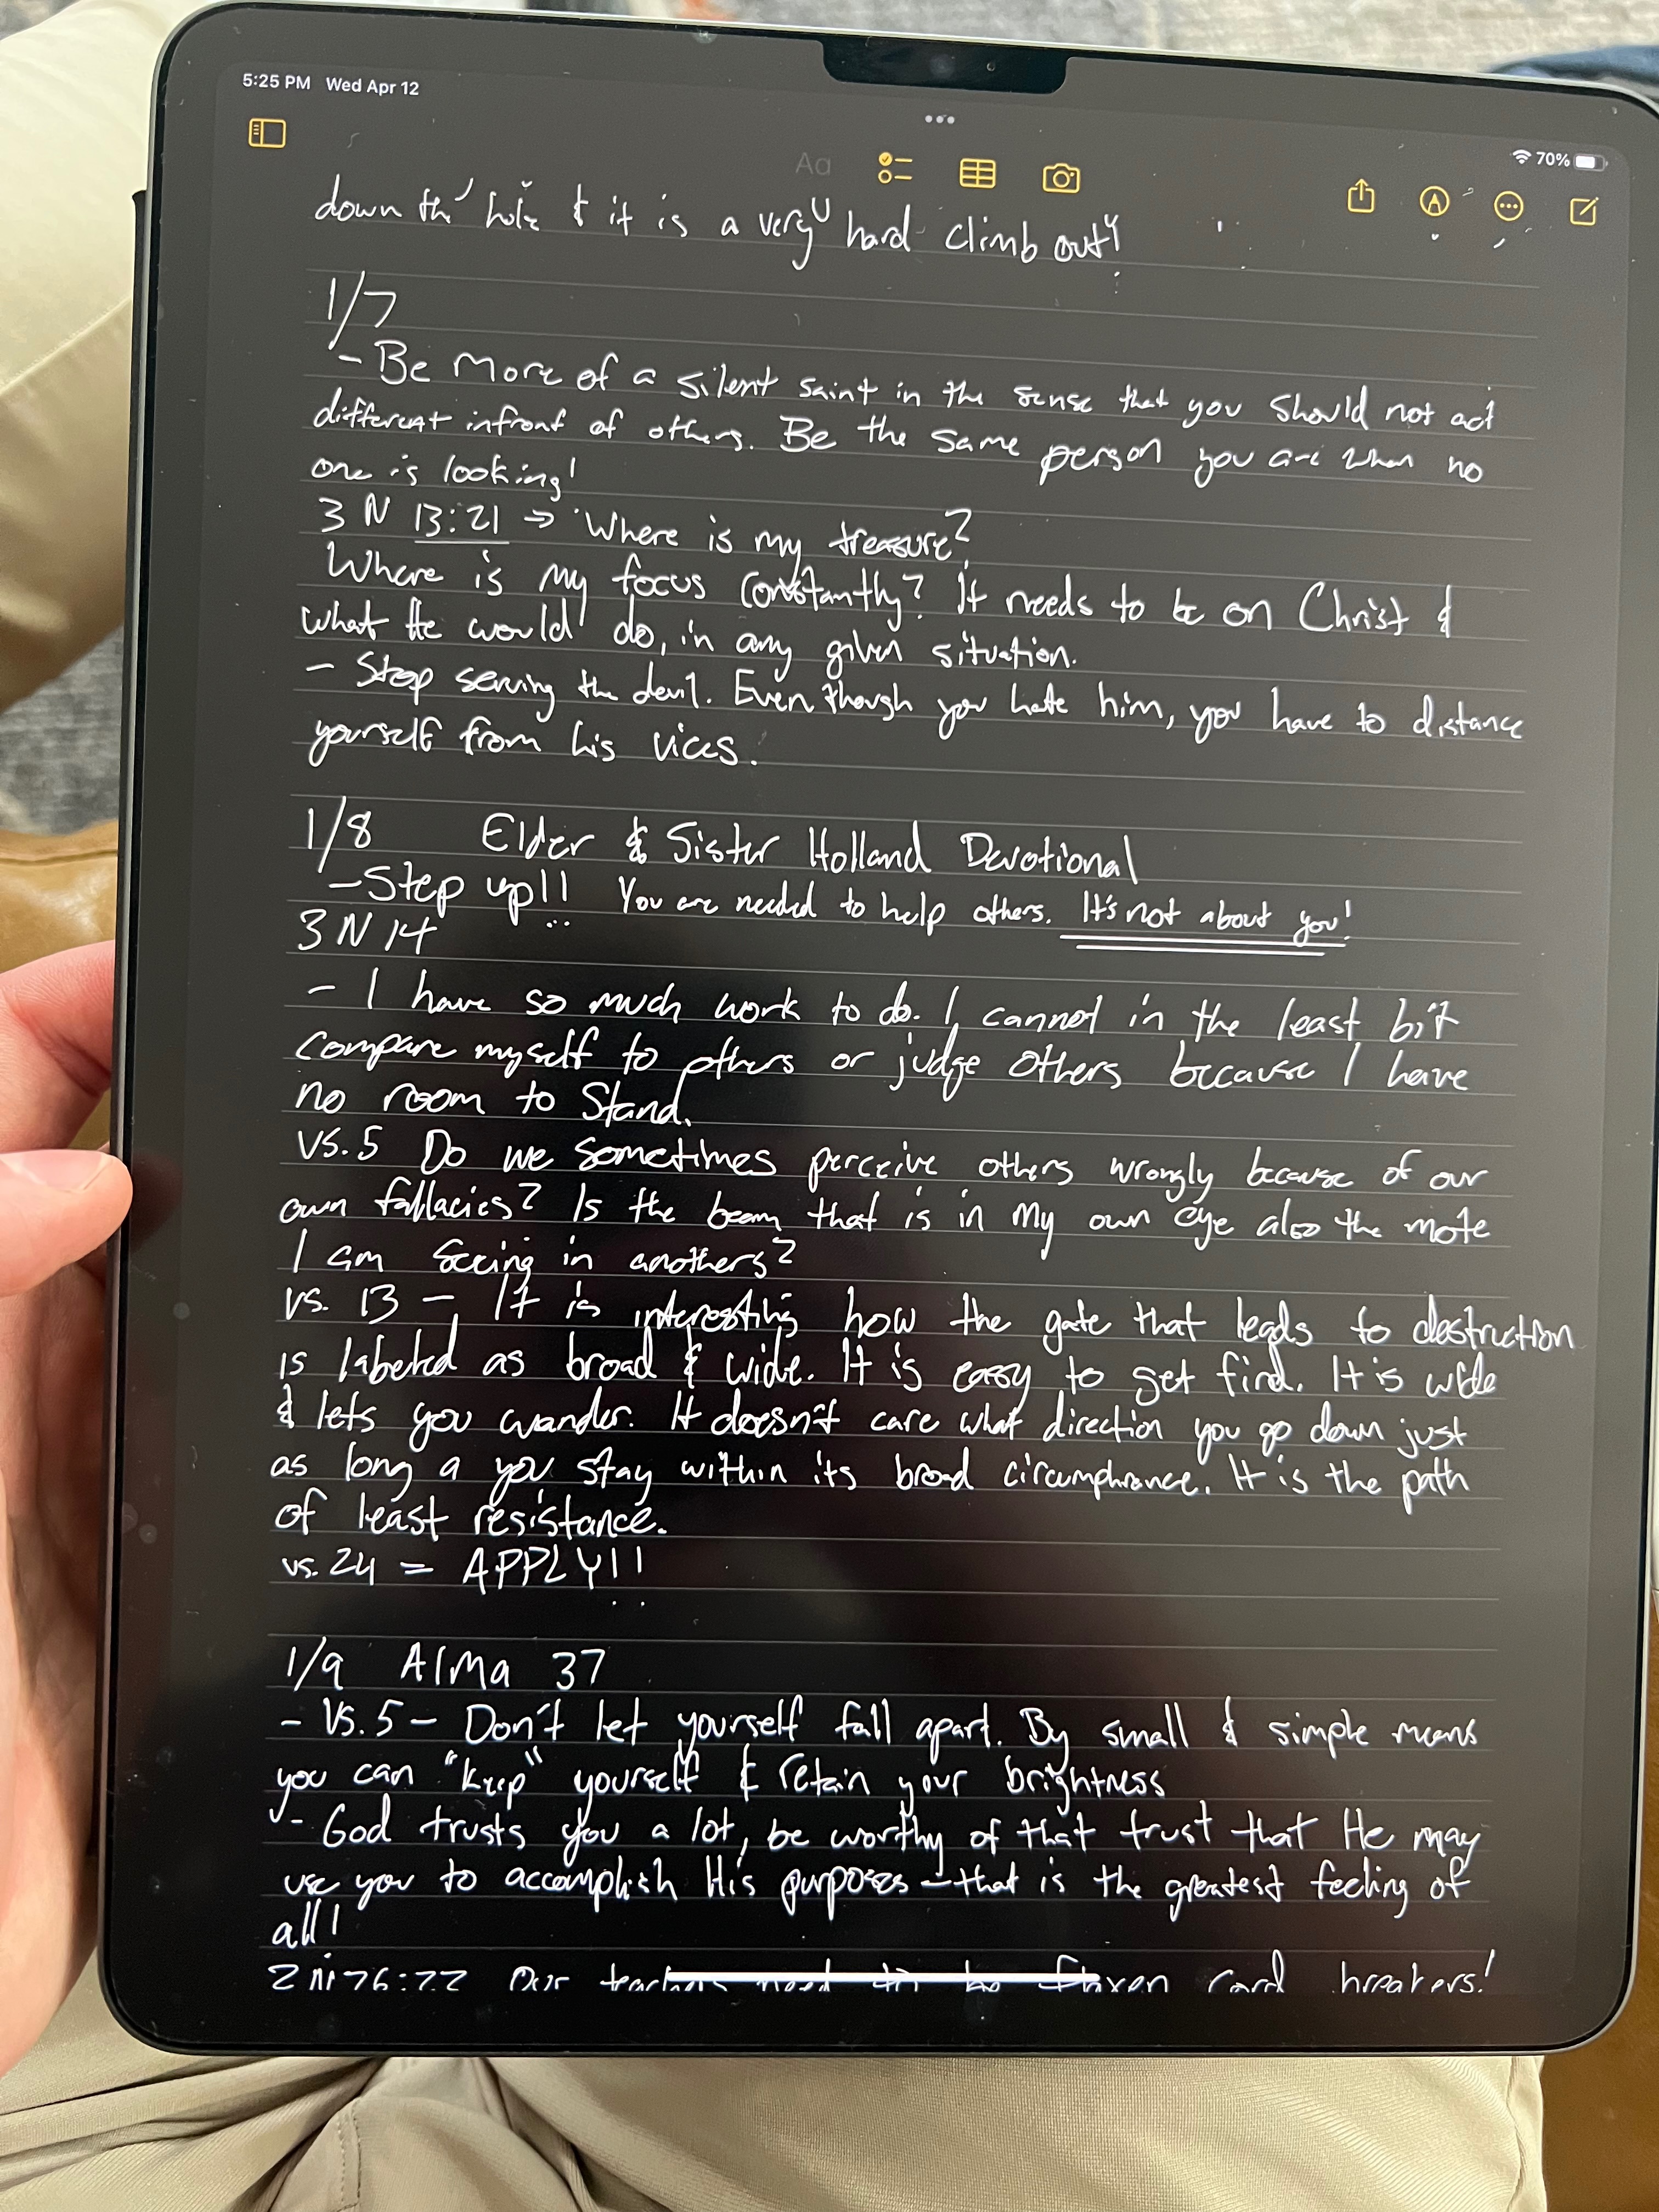 5:25 PM Wed Apr 12
70%
Aa
down the hole & it is a very hard climb out!
1/7
- Be more of a silent saint in the sense that you should not act
different infront of others. Be the same person you are when no
one is looking!
3 N 13:21 => Where is my treasure?
Where is my focus constantly? It needs to be on Christ &
what He would do, in any given situation.
- Stop serving the devil. Even though you hate him, you have to distance
yourself from his vices.
1/8 Elder & Sister Holland Devotional
- Step up!! You are needed to help others. It's not about you!
3 N 14
- I have so much work to do. I cannot in the least bit
compare myself to others or judge others because I have
no room to stand.
vs. 5 Do we sometimes perceive others wrongly because of our
own fallacies? Is the beam that is in my own eye also the mote
I am seeing in anothers?
vs. 13 - It is interesting how the gate that leads to destruction
is labeled as broad & wide. It is easy to get find. It is wide
& lets you wander. It doesn't care what direction you go down just
as long a you stay within its broad circumphrance. It is the path
of least resistance.
vs. 24 = APPLY!!
1/9 Alma 37
- Vs. 5 - Don't let yourself fall apart. By small & simple means
you can "keep" yourself & retain your brightness
- God trusts you a lot, be worthy of that trust that He may
use you to accomplish His purposes - that is the greatest feeling of
all!
2 N 26:22 Our teachers need to be flaxen cord breakers!